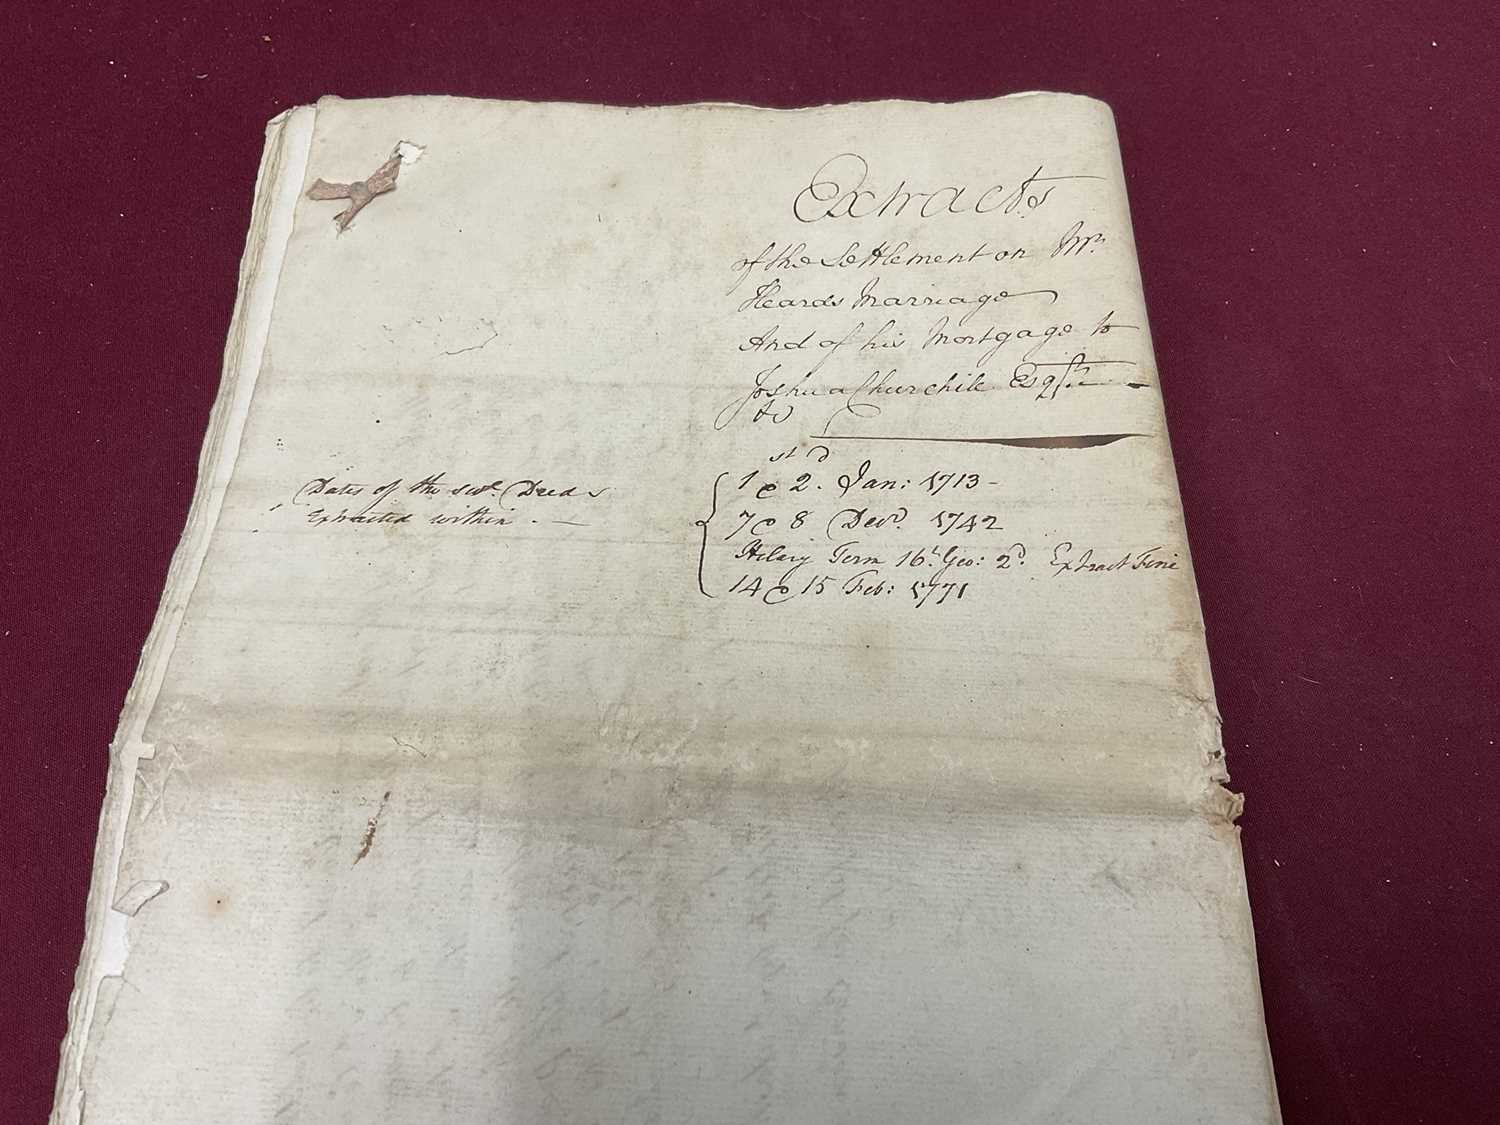 Extracts
of the Settlement on Mr.
Heards Marriage
And of his Mortgage to
Joshua Churchill Esqr.
&c
Dates of the sevl. Deeds
Extracted within . —
st d
1 & 2. Jan: 1713 –
7 & 8 Decr. 1742
Hilary Term 16th. Geo: 2d. Extract Fine
14 & 15 Feb: 1771